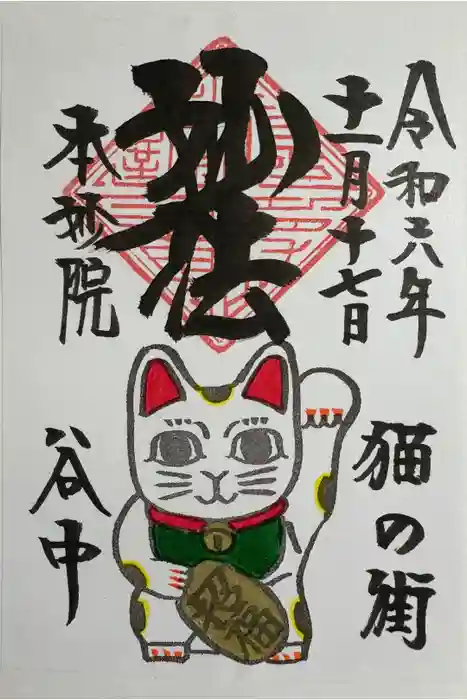 令和六年
十一月十七日
妙法
本妙院
猫の街
谷中
招福